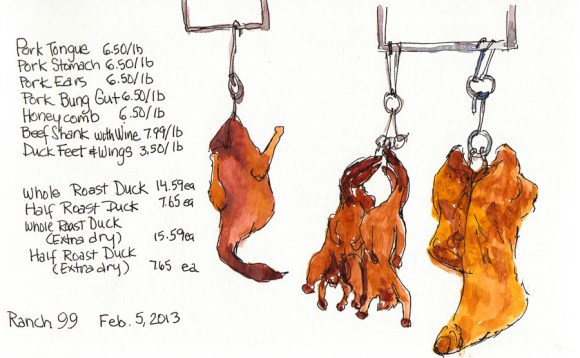 Pork Tongue 6.50/lb
Pork Stomach 6.50/lb
Pork Ears 6.50/lb
Pork Bung Gut 6.50/lb
Honeycomb 6.50/lb
Beef Shank with Wine 7.99/lb
Duck Feet & Wings 3.50/lb
Whole Roast Duck 14.59 ea
Half Roast Duck 7.65 ea
Whole Roast Duck
(Extra dry) 15.59 ea
Half Roast Duck
(Extra dry) 7.65 ea
Ranch 99 Feb. 5, 2013